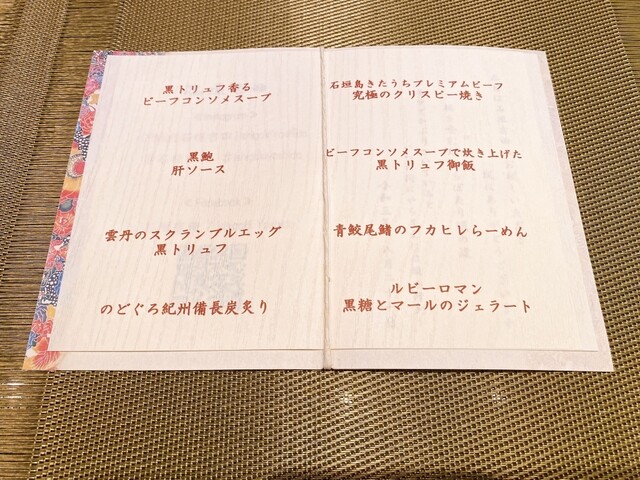 黒トリュフ香る
ビーフコンソメスープ
黒鮑
肝ソース
雲丹のスクランブルエッグ
黒トリュフ
のどぐろ紀州備長炭炙り
石垣島きたうちプレミアムビーフ
究極のクリスピー焼き
ビーフコンソメスープで炊き上げた
黒トリュフ御飯
青鮫尾鰭のフカヒレらーめん
ルビーロマン
黒糖とマールのジェラート